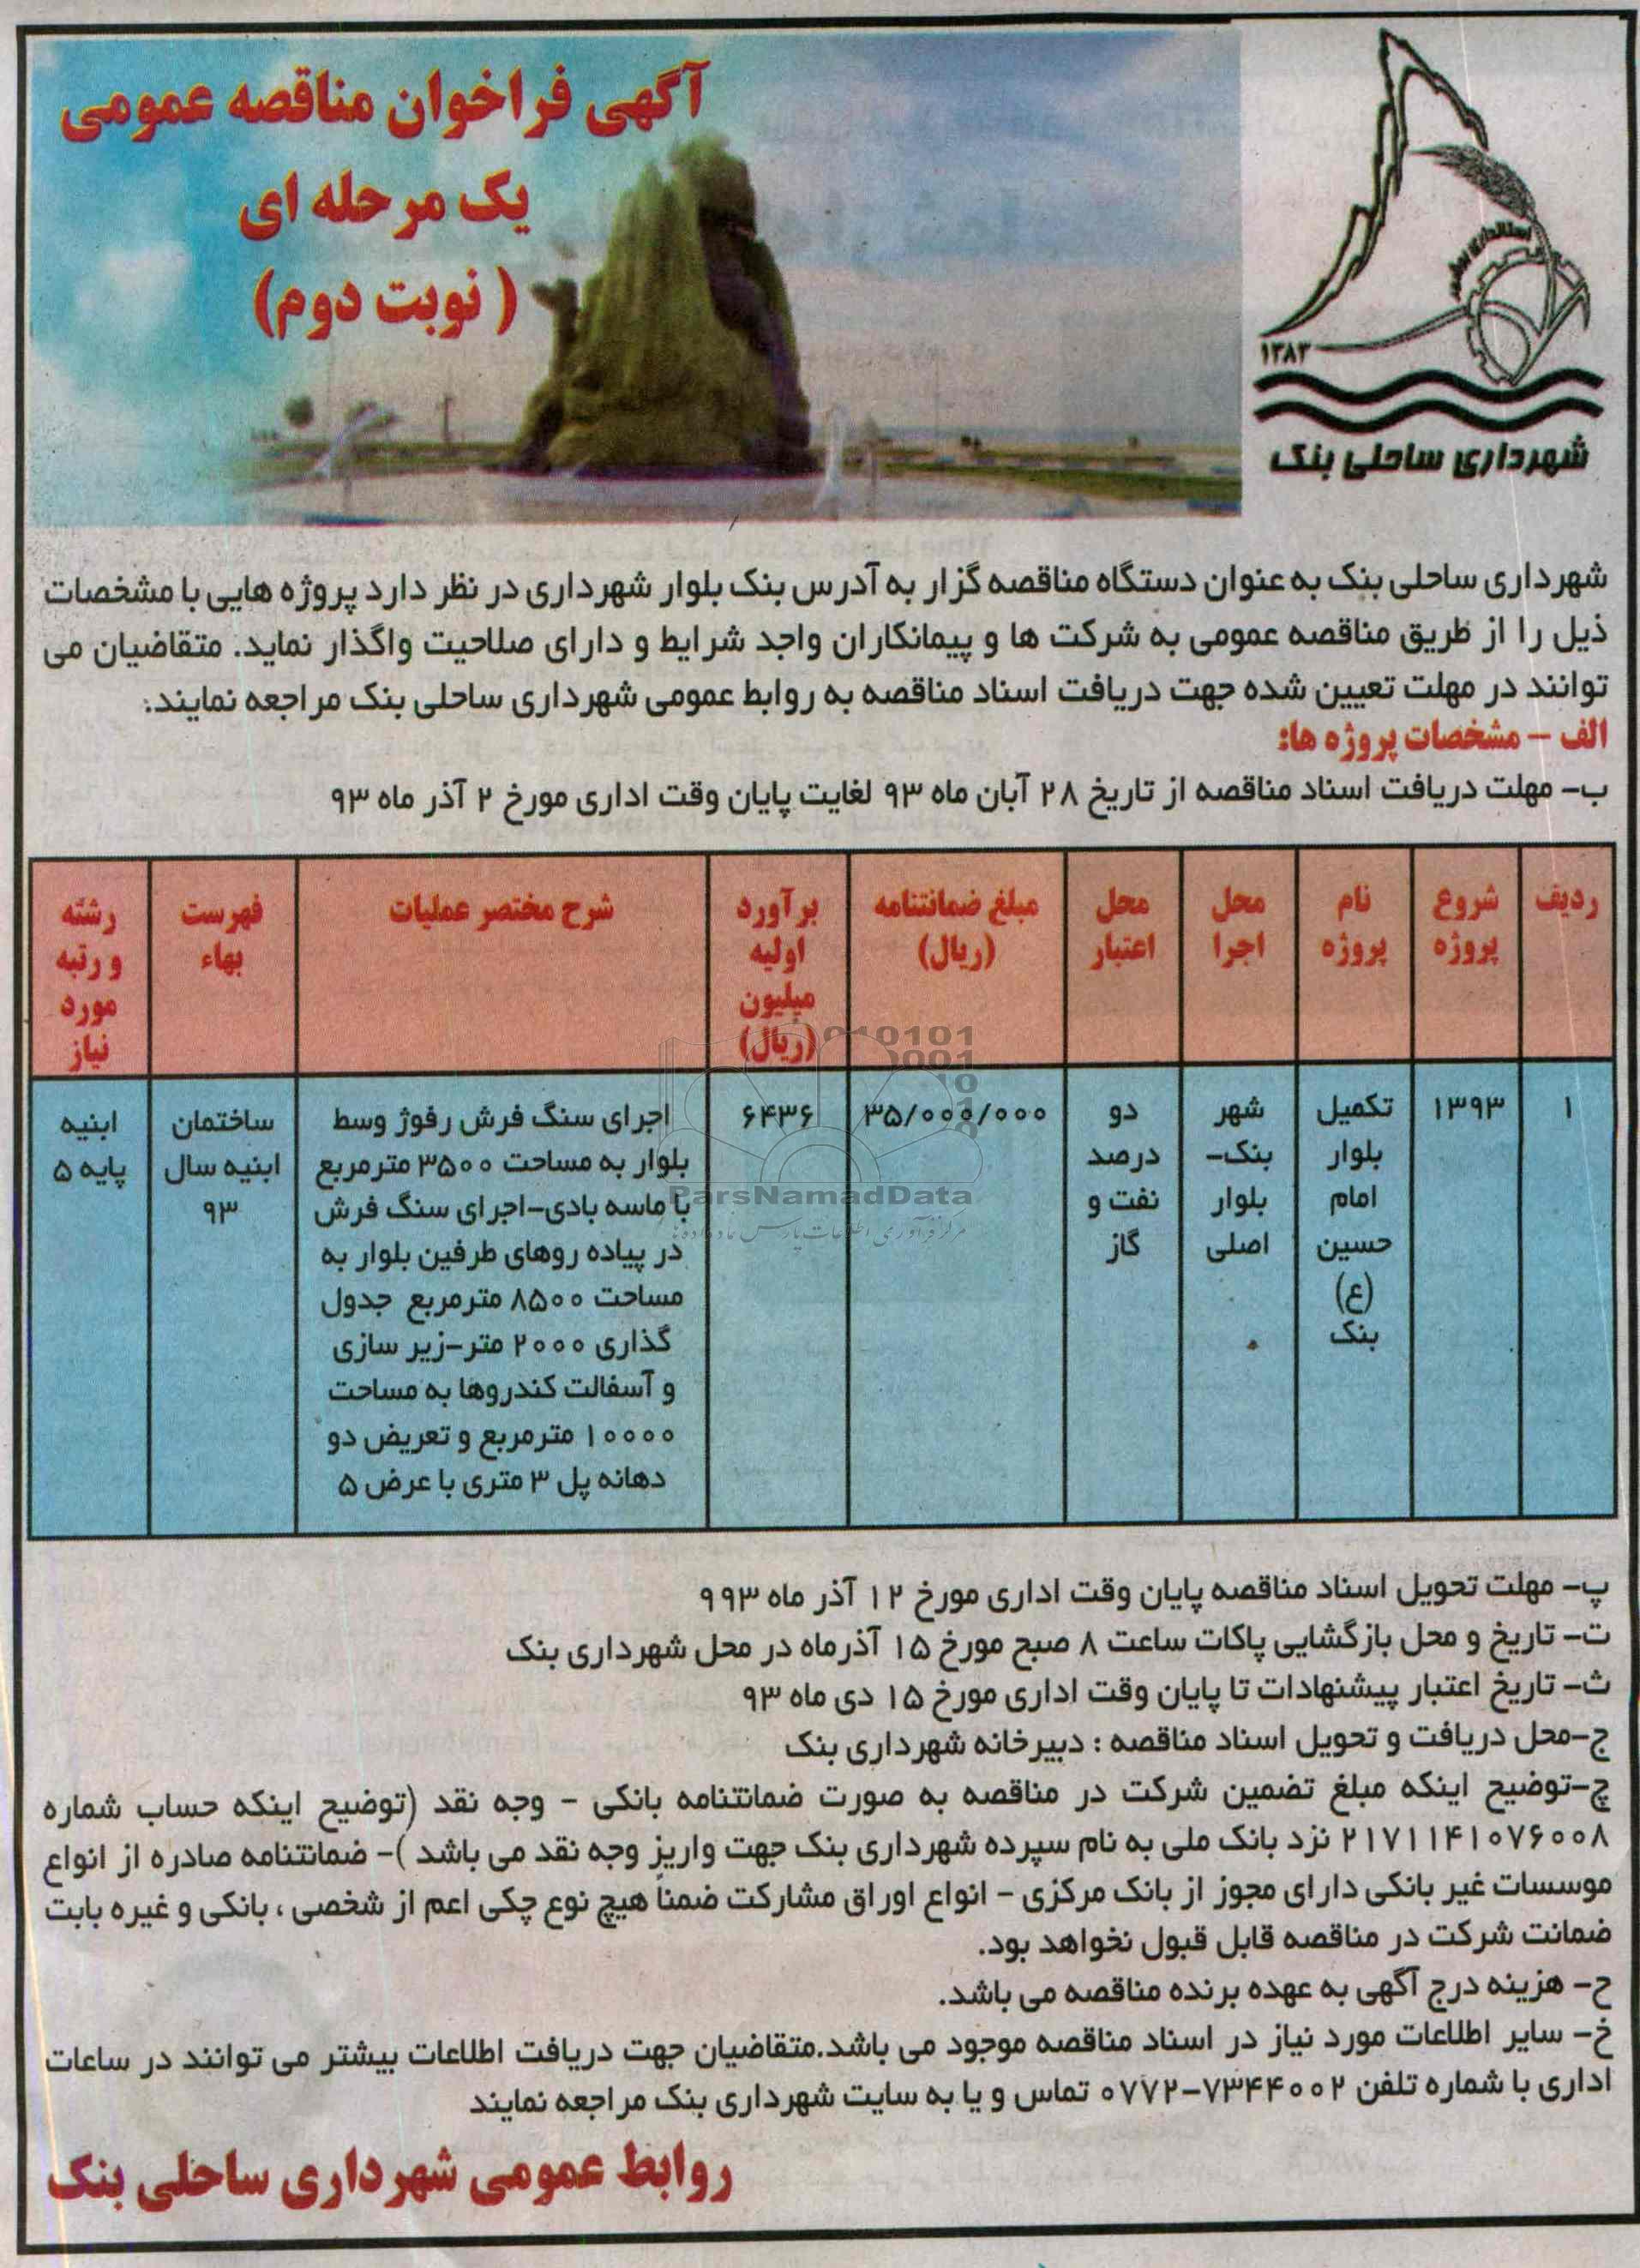 آگهی فراخوان مناقصه عمومی
یک مرحله ای
( نوبت دوم)
استانداری بوشهر
۱۳۸۳
شهرداری ساحلی بنک
شهرداری ساحلی بنک به عنوان دستگاه مناقصه گزار به آدرس بنک بلوار شهرداری در نظر دارد پروژه هایی با مشخصات
ذیل را از طریق مناقصه عمومی به شرکت ها و پیمانکاران واجد شرایط و دارای صلاحیت واگذار نماید. متقاضیان می
توانند در مهلت تعیین شده جهت دریافت اسناد مناقصه به روابط عمومی شهرداری ساحلی بنک مراجعه نمایند:
الف – مشخصات پروژه ها:
ب- مهلت دریافت اسناد مناقصه از تاریخ ۲۸ آبان ماه ۹۳ لغایت پایان وقت اداری مورخ ۲ آذر ماه ۹۳
ردیف
شروع
پروژه
نام
پروژه
محل
اجرا
محل
اعتبار
مبلغ ضمانتنامه
(ریال)
برآورد
اولیه
میلیون
(ریال)
شرح مختصر عملیات
فهرست
بهاء
رشته
و رتبه
مورد
نیاز
۱
۱۳۹۳
تکمیل
بلوار
امام
حسین
(ع)
بنک
شهر
بنک-
بلوار
اصلی
دو
درصد
نفت و
گاز
۳۵/۰۰۰/۰۰۰
۶۴۳۶
اجرای سنگ فرش رفوژ وسط
بلوار به مساحت ۳۵۰۰ مترمربع
با ماسه بادی-اجرای سنگ فرش
در پیاده روهای طرفین بلوار به
مساحت ۸۵۰۰ مترمربع جدول
گذاری ۲۰۰۰ متر-زیر سازی
و آسفالت کندروها به مساحت
۱۰۰۰۰ مترمربع و تعریض دو
دهانه پل ۳ متری با عرض ۵
ساختمان
ابنیه سال
۹۳
ابنیه
پایه ۵
ParsNamadData
مرکز فرآوری اطلاعات پارس نماد داده ها
پ- مهلت تحویل اسناد مناقصه پایان وقت اداری مورخ ۱۲ آذر ماه ۹۹۳
ت- تاریخ و محل بازگشایی پاکات ساعت ۸ صبح مورخ ۱۵ آذرماه در محل شهرداری بنک
ث- تاریخ اعتبار پیشنهادات تا پایان وقت اداری مورخ ۱۵ دی ماه ۹۳
ج-محل دریافت و تحویل اسناد مناقصه : دبیرخانه شهرداری بنک
چ-توضیح اینکه مبلغ تضمین شرکت در مناقصه به صورت ضمانتنامه بانکی - وجه نقد (توضیح اینکه حساب شماره
۲۱۷۱۱۴۱۰۷۶۰۰۸ نزد بانک ملی به نام سپرده شهرداری بنک جهت واریز وجه نقد می باشد )- ضمانتنامه صادره از انواع
موسسات غیر بانکی دارای مجوز از بانک مرکزی - انواع اوراق مشارکت ضمناً هیچ نوع چکی اعم از شخصی ، بانکی و غیره بابت
ضمانت شرکت در مناقصه قابل قبول نخواهد بود.
ح- هزینه درج آگهی به عهده برنده مناقصه می باشد.
خ- سایر اطلاعات مورد نیاز در اسناد مناقصه موجود می باشد.متقاضیان جهت دریافت اطلاعات بیشتر می توانند در ساعات
اداری با شماره تلفن ۷۳۴۴۰۰۲-۰۷۷۲ تماس و یا به سایت شهرداری بنک مراجعه نمایند
روابط عمومی شهرداری ساحلی بنک